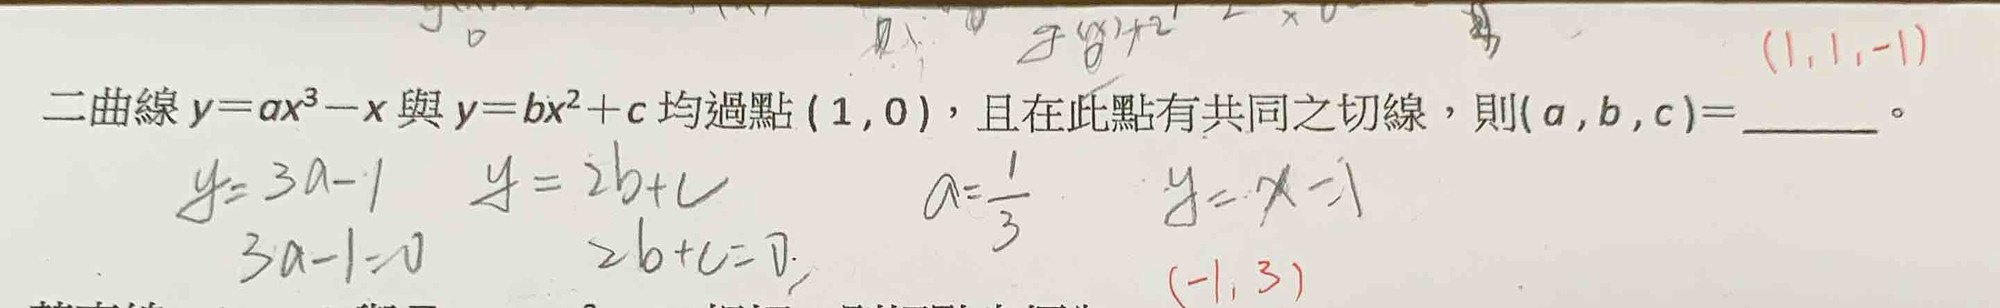 g(x)+2
(1,1,-1)
二曲線 y=ax³-x 與 y=bx²+c 均過點 ( 1 , 0 ),且在此點有共同之切線,則( a , b , c )=______。
y=3a-1 y=2b+c a=1/3 y=x-1
3a-1=0 2b+c=0
(-1,3)